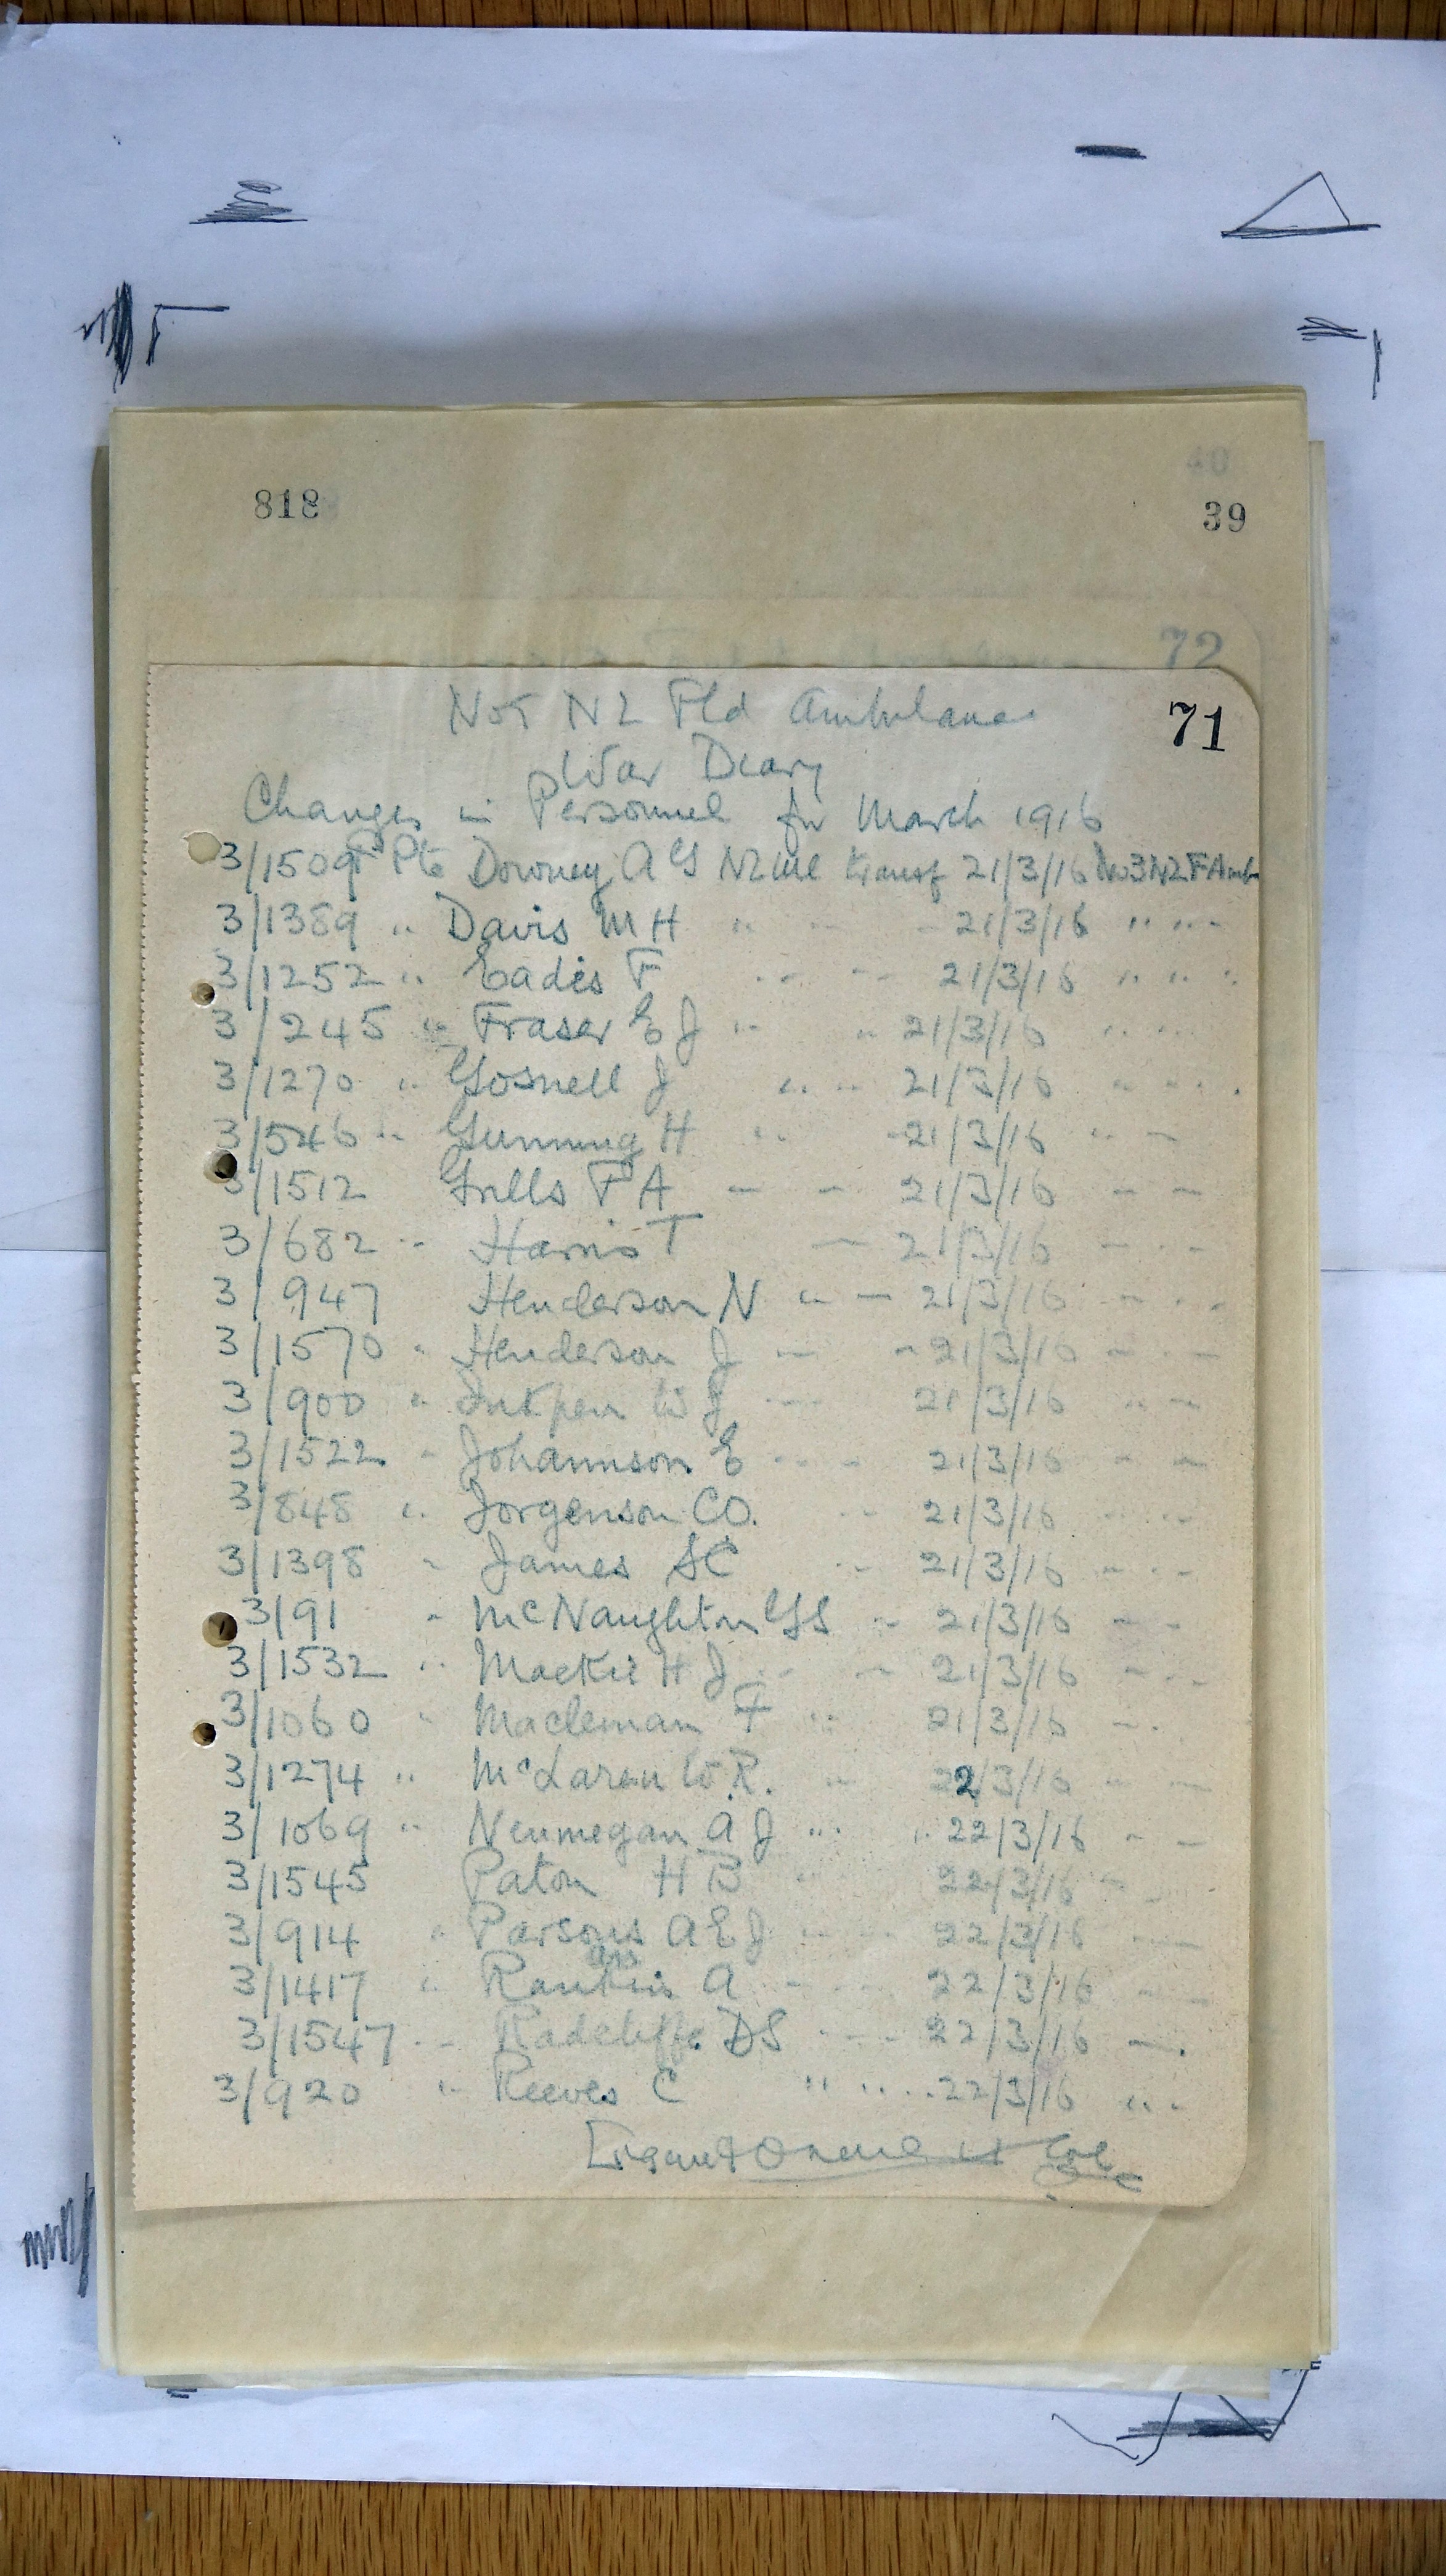 40
818 39
72
No 1 NZ Fld Ambulance 71
War Diary
Changes in Personnel for March 1916
3/1509 Pte Downey A G NZMC transf 21/3/16 No 3 NZ F Amb
3/1389 " Davis M H " - - 21/3/16 " " -
3/1252 " Eades F - - - - 21/3/16 " " "
3/245 " Fraser E J " " 21/3/16 " "
3/1270 " Gosnell J " " 21/3/16 " - -
3/546 " Gunning H " - 21/3/16 " -
3/1512 Grills F A - - 21/3/16 - -
3/682 " Harris T - 21/3/16 - - -
3/947 Henderson N " - 21/3/16 - - -
3/1570 " Henderson J - - 21/3/16 - - -
3/900 " Inkpen W J - 21/3/16 " -
3/1522 - Johannson E - - - 21/3/16 - -
3/848 " Jorgenson C O. - - 21/3/16 - - -
3/1398 - James S C - - 21/3/16 - - -
3/91 - McNaughton G S - 21/3/16 - -
3/1532 " Mackie H J - - 21/3/16 - - -
3/1060 " F " 21/3/16 - -
3/1274 " McLaren W.R. - 22/3/16 - -
3/1069 " Neumegan A J " " 22/3/16 - -
3/1545 Paton H B " 22/3/16 - -
3/914 " Parsons A E J - - 22/3/16 -
3/1417 " A - - - 22/3/16 - -
3/1547 - - Radcliffe D S - - - 22/3/16 - -
3/920 " Reeves C " " - 22/3/16 " -
Lt Col